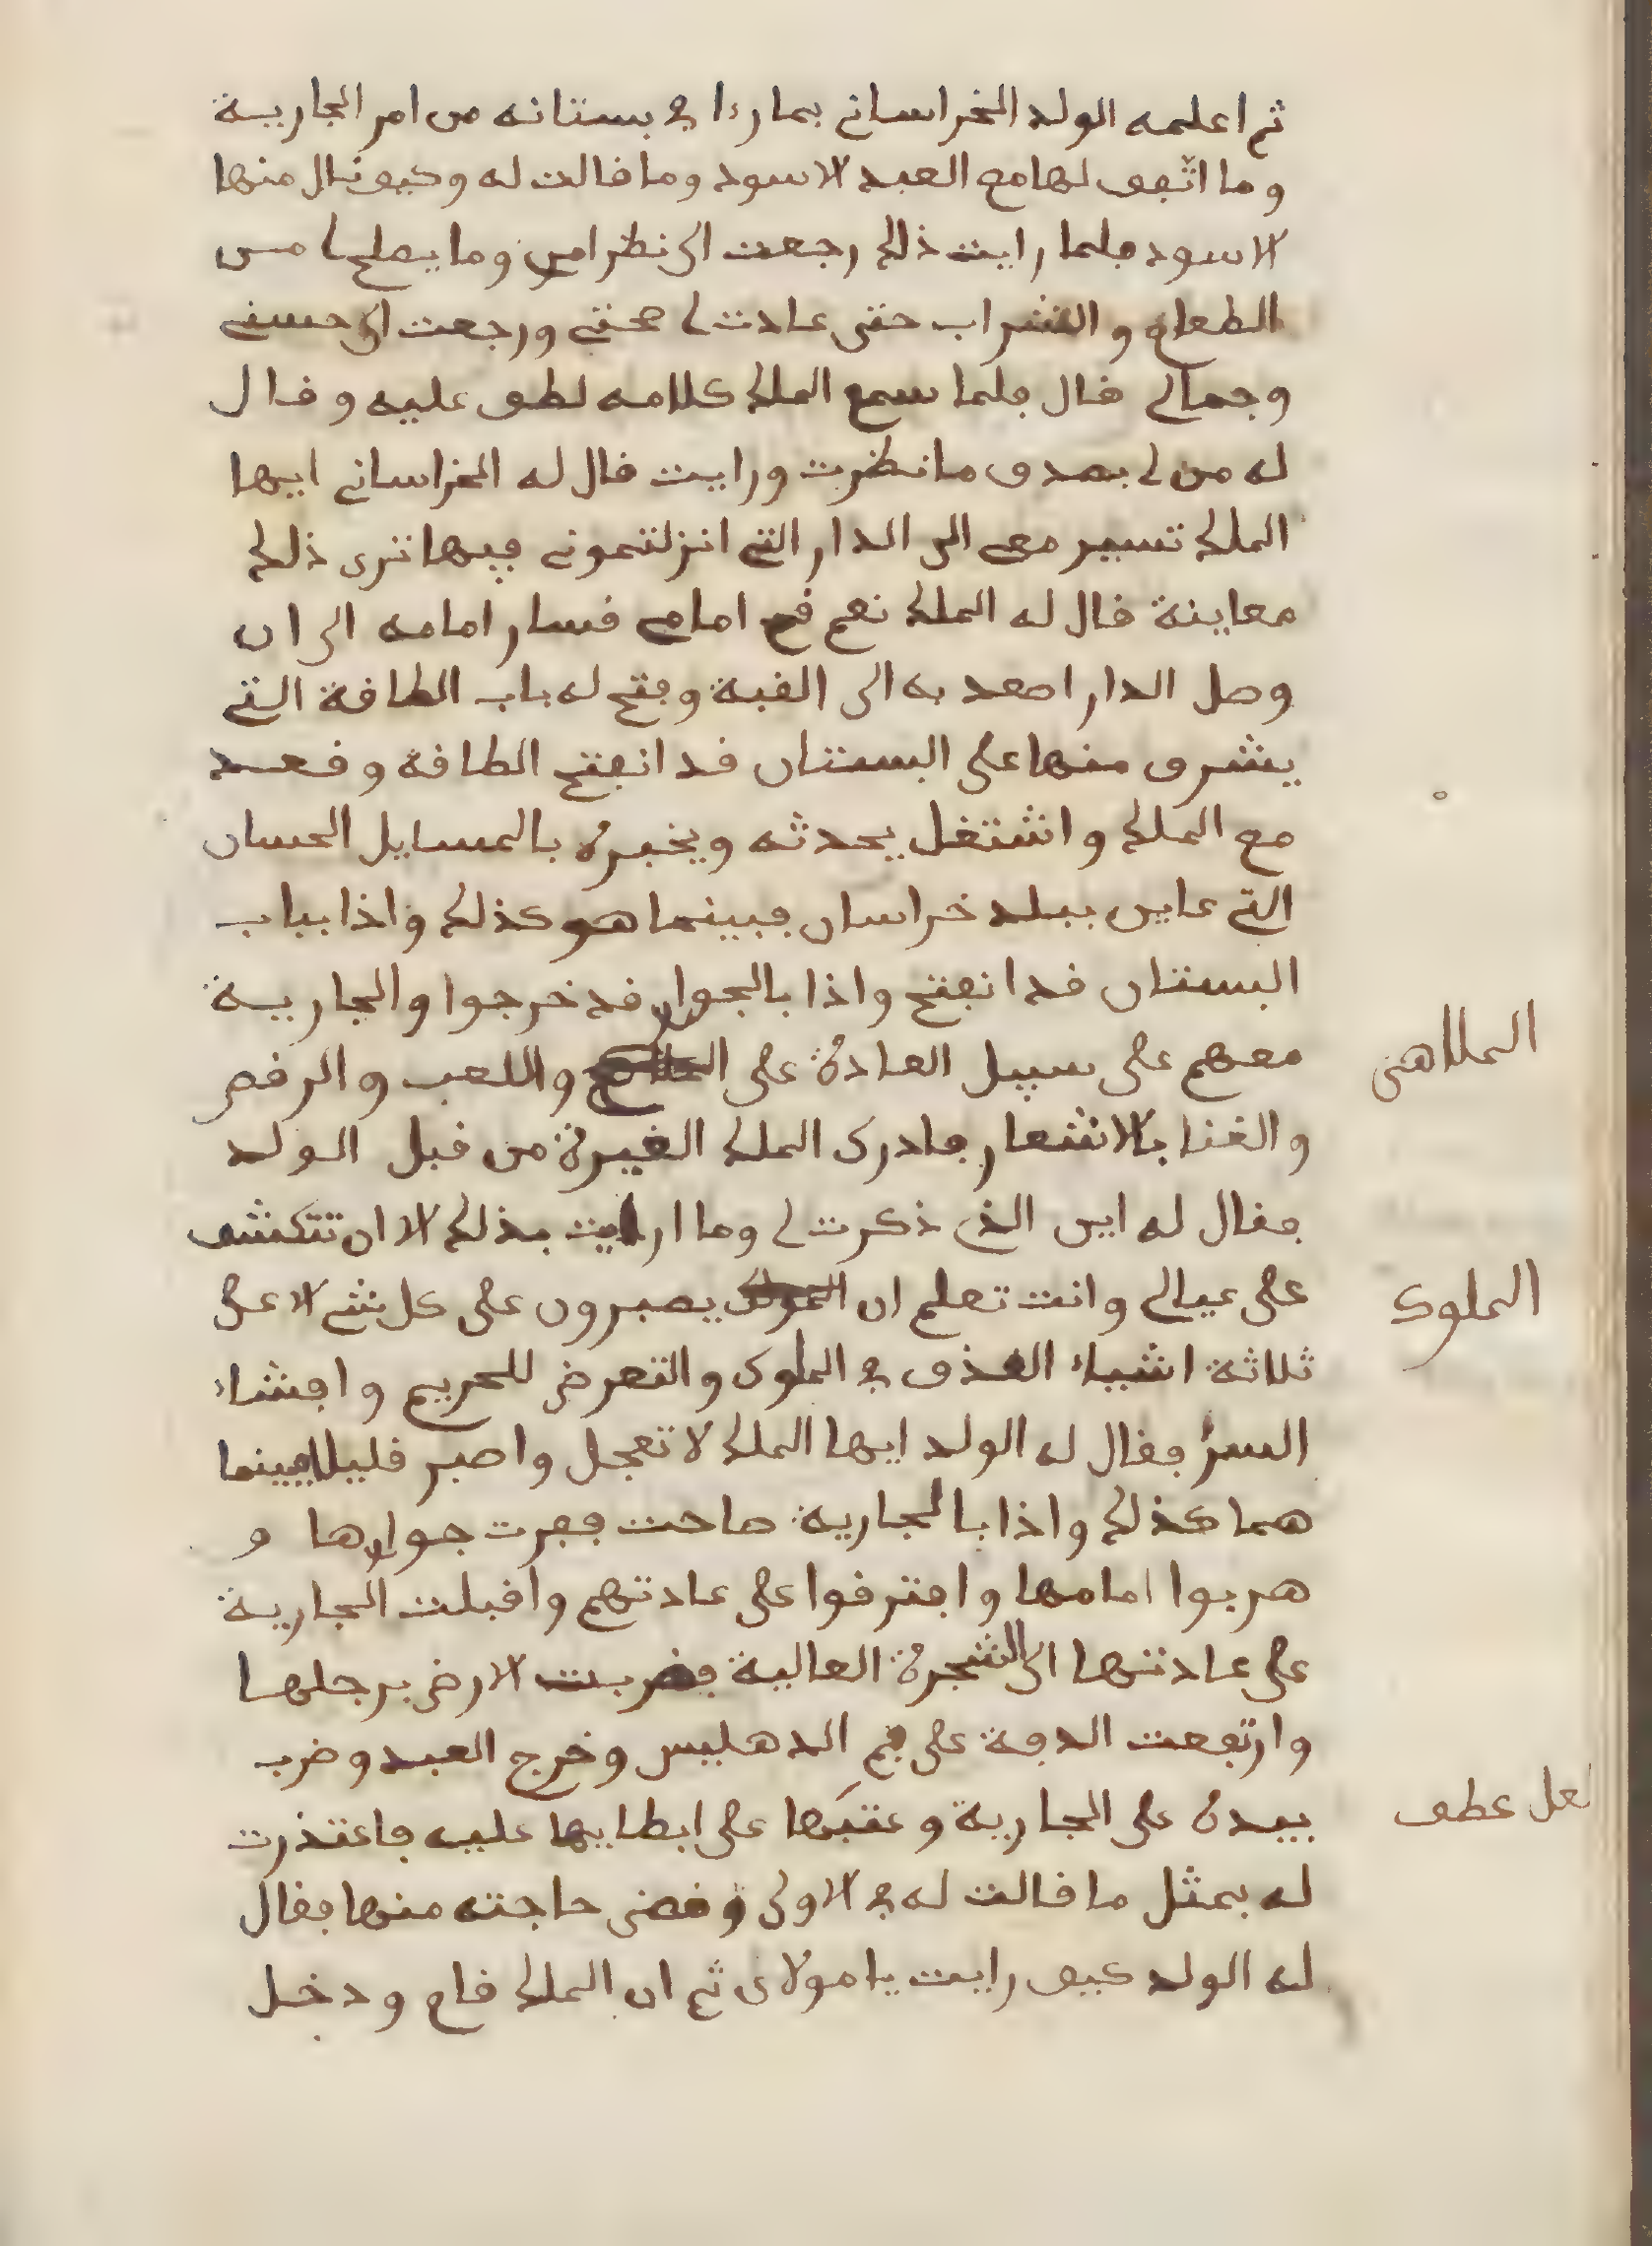 ثم اعلمه الولد الخراساني بما رءا في بستانه من امر الجارية
وما اتّفق لها مع العبد الاسود وما قالت له وكيف نال منها
الاسود فلما رايت ذلك رجعت الى نظر امري وما يصلح لي من
الطعام والشراب حتى عادت لي صحتي ورجعت الى حسني
وجمالي قال فلما سمع الملك كلامه لطف عليه وقال
له من لي بصدق ما نظرت ورايت قال له الخراساني ايها
الملك تسير معي الى الدار التي انزلتموني فيها ترى ذلك
معاينة قال له الملك نعم قم امامي فسار امامه الى ان
وصل الدار اصعد به الى القبة وفتح له باب الطاقة التي
يشرف منها على البستان قد انفتح الطاقة وقعد
مع الملك واشتغل يحدثه ويخبره بالمسايل الحسان
التي عاين ببلد خراسان فبينما هو كذلك واذا بباب
البستان قد انفتح واذا بالجوار قد خرجوا والجارية
معهم على سبيل العادة على واللعب والرقص
الملاهي
والغنا بالاشعار فادرك الملك الغيرة من قبل الولد
فقال له اين الذي ذكرت لي وما اردت بذلك الا ان تتكشف
على عيالي وانت تعلم ان يصبرون على كل شي الا على
الملوك
ثلاثة اشياء القذف في الملوك والتعرض للحريم وافشاء
السرّ فقال له الولد ايها الملك لا تعجل واصبر قليلا فبينما
هما كذلك واذا بالجارية صاحت ففرت جوارها و
هربوا امامها وافترقوا على عادتهم واقبلت الجارية
على عادتها الى الشجرة العالية فضربت الارض برجلها
وارتفعت الدفة على فم الدهليس وخرج العبد وضرب
بيده على الجارية وعتبها على ابطايها عليه فاعتذرت
لعل عطف
له بمثل ما قالت له في الاولى وقضى حاجته منها فقال
له الولد كيف رايت يا مولاي ثم ان الملك قام ودخل